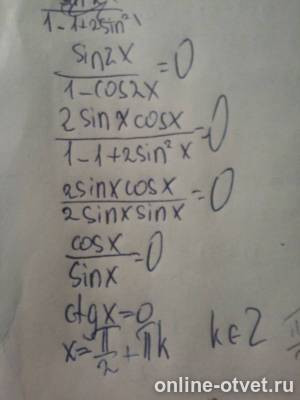 1-1+2sin²x
sin2x/1-cos2x=0
2sinxcosx/1-1+2sin²x=0
2sinxcosx/2sinxsinx=0
cosx/sinx=0
ctgx=0
x=π/2+πk k∈Z
online-otvet.ru